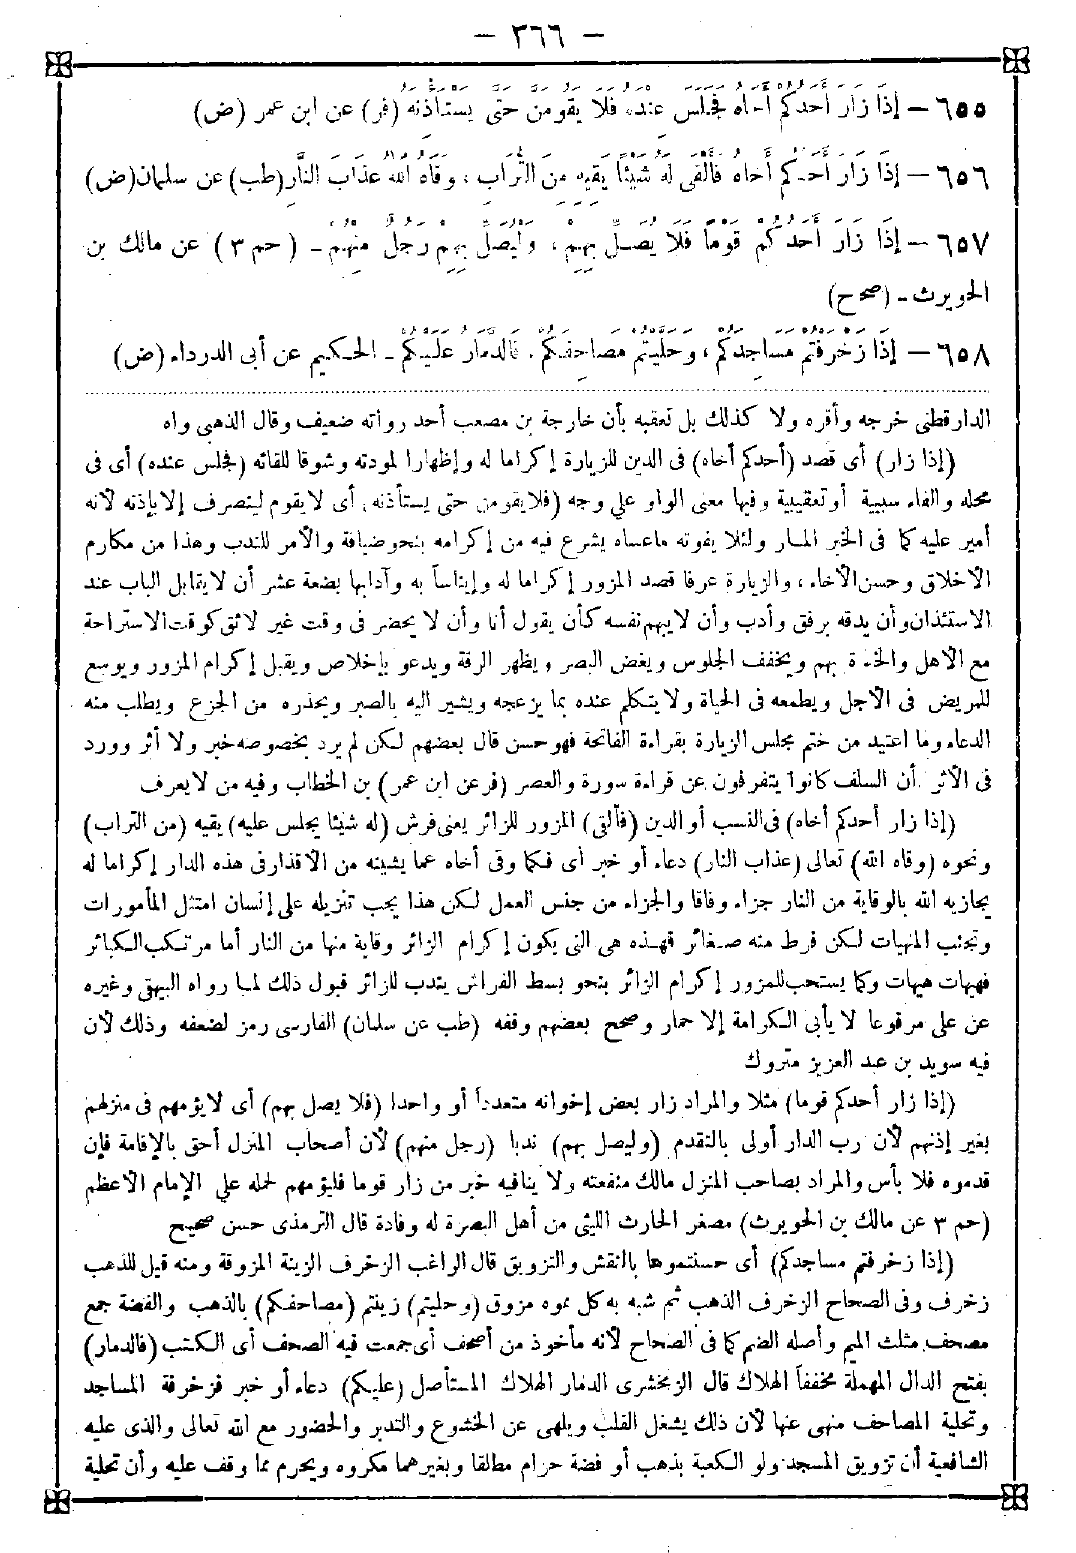 — ٣٦٦ —
٦٥٥ — إِذَا زَارَ أَحَدُكُمْ أَخَاهُ فَجَلَسَ عِنْدَهُ فَلَا يَقُومَنَّ حَتَّى يَسْتَأْذِنَهُ (فر) عن ابن عمر (ض)
٦٥٦ — إِذَا زَارَ أَحَدُكُمْ أَخَاهُ فَأَلْقَى لَهُ شَيْئًا يَقِيهِ مِنَ التُّرَابِ، وَقَاهُ اللهُ عَذَابَ النَّارِ (طب) عن سلمان (ض)
٦٥٧ — إِذَا زَارَ أَحَدُكُمْ قَوْمًا فَلَا يُصَلِّ بِهِمْ، وَلْيُصَلِّ بِهِمْ رَجُلٌ مِنْهُمْ - (حم ٣) عن مالك بن
الحويرث - (صح)
٦٥٨ — إِذَا زَخْرَفْتُمْ مَسَاجِدَكُمْ، وَحَلَّيْتُمْ مَصَاحِفَكُمْ، فَالدَّمَارُ عَلَيْكُمْ - الحكيم عن أبى الدرداء (ض)
الدارقطنى خرجه وأقره ولا كذلك بل تعقبه بأن خارجة بن مصعب أحد رواته ضعيف وقال الذهبى واه
(إذا زار) أى قصد (أحدكم أخاه) فى الدين للزيارة إكراما له وإظهارا لمودته وشوقا للقائه (فجلس عنده) أى فى
محله والفاء سببية أو تعقيبية وفيها معنى الواو على وجه (فلا يقومن حتى يستأذنه) أى لا يقوم لينصرف إلا بإذنه لأنه
أمير عليه كما فى الخبر المار ولئلا يفوته ماعساه يشرع فيه من إكرامه بنحو ضيافة والأمر للندب وهذا من مكارم
الأخلاق وحسن الأخاء، والزيارة عرفا قصد المزور إكراما له وإيناساً به وآدابها بضعة عشر أن لا يقابل الباب عند
الاستئذان وأن يدقه برفق وأدب وأن لا يبهم نفسه كأن يقول أنا وأن لا يحضر فى وقت غير لائق كوقت الاستراحة
مع الأهل والخلوة بهم ويخفف الجلوس ويغض البصر ويظهر الرقة ويدعو بإخلاص ويقبل إكرام المزور ويوسع
للمريض فى الأجل ويطمعه فى الحياة ولا يتكلم عنده بما يزعجه ويشير اليه بالصبر ويحذره من الجزع ويطلب منه
الدعاء وما اعتيد من ختم مجلس الزيارة بقراءة الفاتحة فهو حسن قال بعضهم لكن لم يرد بخصوصه خبر ولا أثر وورد
فى الأثر أن السلف كانوا يتفرقون عن قراءة سورة والعصر (فر عن ابن عمر) بن الخطاب وفيه من لا يعرف
(إذا زار أحدكم أخاه) فى النسب أو الدين (فألقى) المزور للزائر يعنى فرش (له شيئا يجلس عليه) يقيه (من التراب)
ونحوه (وقاه الله) تعالى (عذاب النار) دعاء أو خبر أى فكما وقى أخاه عما يشينه من الأقذار فى هذه الدار إكراما له
يجازيه الله بالوقاية من النار جزاء وفاقا والجزاء من جنس العمل لكن هذا يجب تنزيله على إنسان امتثل المأمورات
وتجنب المنهيات لكن فرط منه صغائر فهذه هى التى يكون إكرام الزائر وقاية منها من النار أما مرتكب الكبائر
فهيهات هيهات وكما يستحب للمزور إكرام الزائر بنحو بسط الفراش يندب للزائر قبول ذلك لما رواه البيهقى وغيره
عن على مرفوعا لا يأبى الكرامة إلا حمار وصحح بعضهم وقفه (طب عن سلمان) الفارسى رمز لضعفه وذلك لأن
فيه سويد بن عبد العزيز متروك
(إذا زار أحدكم قوما) مثلا والمراد زار بعض إخوانه متعدداً أو واحدا (فلا يصل بهم) أى لا يؤمهم فى منزلهم
بغير إذنهم لأن رب الدار أولى بالتقدم (وليصل بهم) ندبا (رجل منهم) لأن أصحاب المنزل أحق بالإقامة فإن
قدموه فلا بأس والمراد بصاحب المنزل مالك منفعته ولا ينافيه خبر من زار قوما فليؤمهم لحمله على الإمام الأعظم
(حم ٣ عن مالك بن الحويرث) مصغر الحارث الليثى من أهل البصرة له وفادة قال الترمذى حسن صحيح
(إذا زخرفتم مساجدكم) أى حسنتموها بالنقش والتزويق قال الراغب الزخرف الزينة المزوقة ومنه قيل للذهب
زخرف وفى الصحاح الزخرف الذهب ثم شبه به كل مموه مزوق (وحليتم) زينتم (مصاحفكم) بالذهب والفضة جمع
مصحف مثلث الميم وأصله الضم كما فى الصحاح لأنه مأخوذ من أصحف أى جمعت فيه الصحف أى الكتب (فالدمار)
بفتح الدال المهملة مخففاً الهلاك قال الزمخشرى الدمار الهلاك المستأصل (عليكم) دعاء أو خبر فزخرفة المساجد
وتحلية المصاحف منهى عنها لأن ذلك يشغل القلب ويلهى عن الخشوع والتدبر والحضور مع الله تعالى والذى عليه
الشافعية أن تزويق المسجد ولو الكعبة بذهب أو فضة حرام مطلقا وبغيرهما مكروه ويحرم مما وقف عليه وأن تحلية